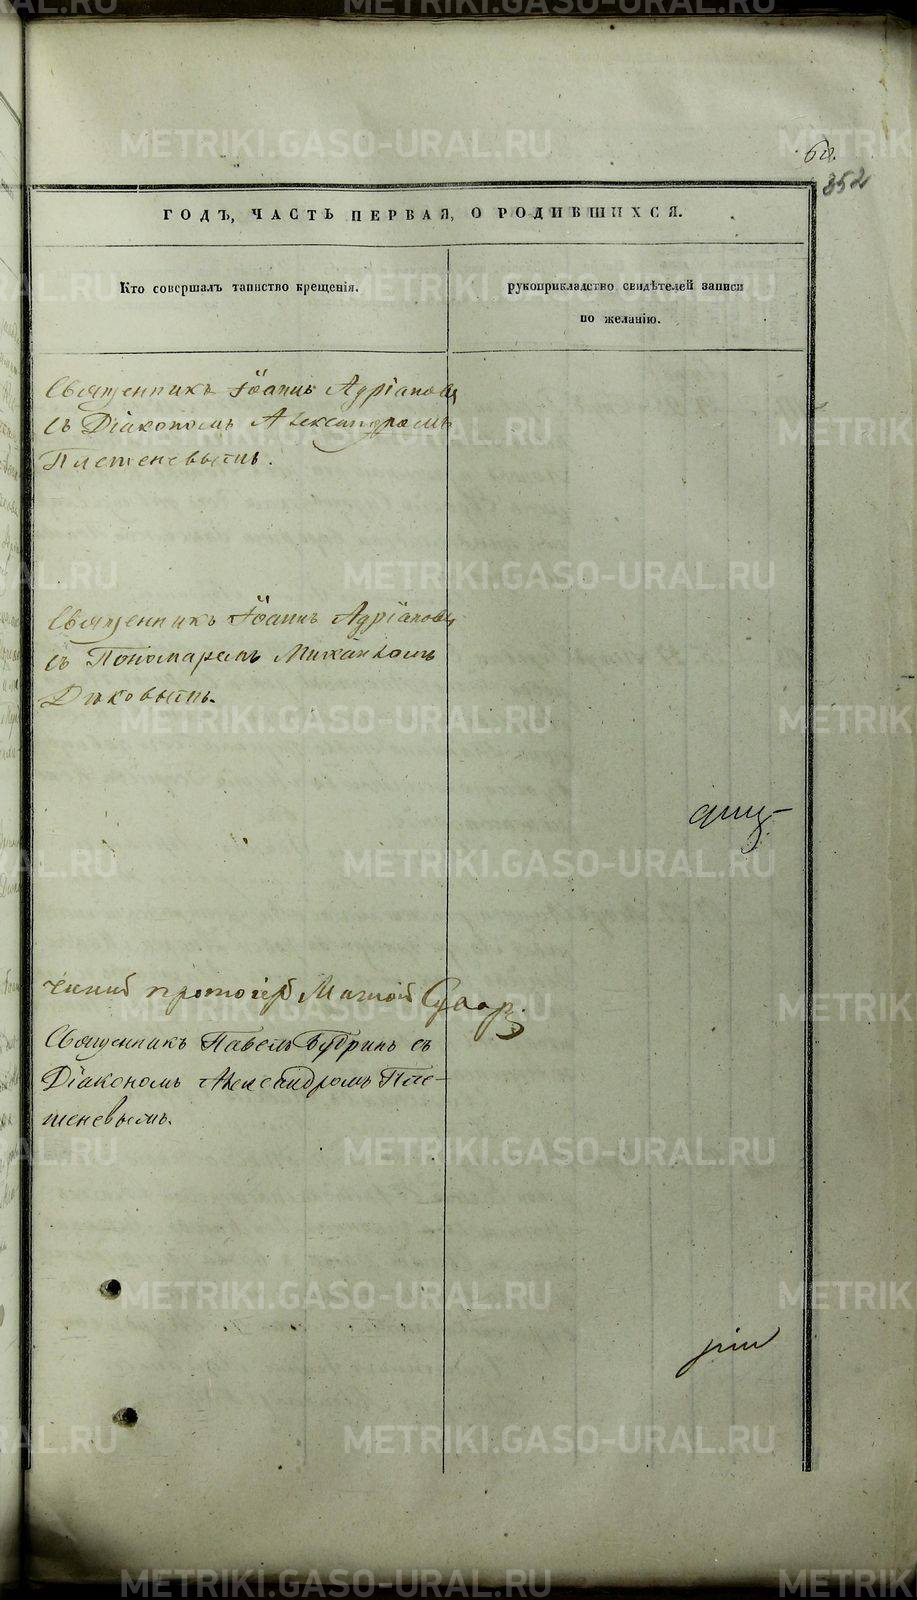 60.
352
ГОДЪ, ЧАСТЬ ПЕРВАЯ, О РОДИВШИХСЯ.
Кто совершалъ таинство крещенія.
рукоприкладство свидѣтелей записи
по желанію.
Священникъ Іоаннъ Адріановъ
съ Діакономъ Александромъ
Плетеневымъ.
Священникъ Іоаннъ Адріановъ
съ Пономаремъ Михаиломъ
Диковымъ.
протоіерей
Священникъ Павелъ Бубринъ съ
Діакономъ Александромъ Пле-
теневымъ.
METRIKI.GASO-URAL.RU